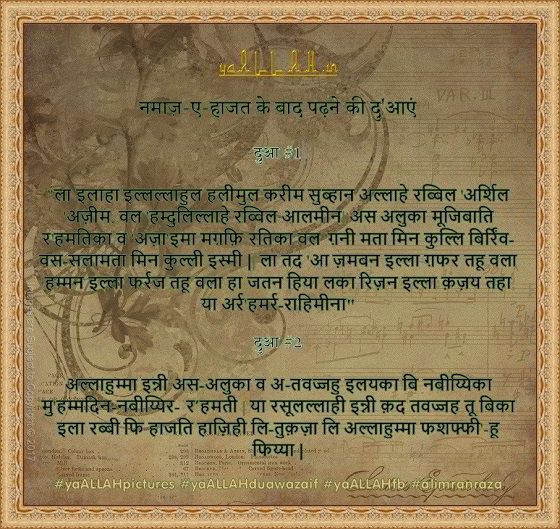 yaALLAH.in
नमाज़-ए-हाजत के बाद पढ़ने की दु'आएं
दुआ #1
"ला इलाहा इल्लल्लाहुल हलीमुल करीम सुब्हान अल्लाहे रब्बिल 'अर्शिल
'अज़ीम, वल 'हम्दुलिल्लाहे रब्विल आलमीन' अस अलुका मूजिवाति
र'हमतिका व 'अज़ा'इमा मग़फ़ि 'रतिका वल 'ग़नी मता मिन कुल्लि बिर्रिंव-
वस-सलामता मिन कुल्ली इस्मी | ला तद 'आ ज़मवन इल्ला ग़फर तहू वला
हम्मन इल्ला फर्रज तहू वला हा जतन हिया लका रिज़न इल्ला क़ज़य तहा
या अर्र'हमर्र-राहिमीना"
दुआ #2
अल्लाहुम्मा इन्नी अस-अलुका व अ-तवज्जहु इलयका बि नबीय्यिका
मु'हम्मदिन-नबीय्यिर- र'हमती | या रसूलल्लाही इन्नी क़द तवज्जह तू बिका
इला रब्बी फि हाजति हाज़िही लि-तुक़ज़ा लि अल्लाहुम्मा फशफ्फी'-हू
फिय्या |
#yaALLAHpictures #yaALLAHduawazaif #yaALLAHfb #alimranraza
VAR. III